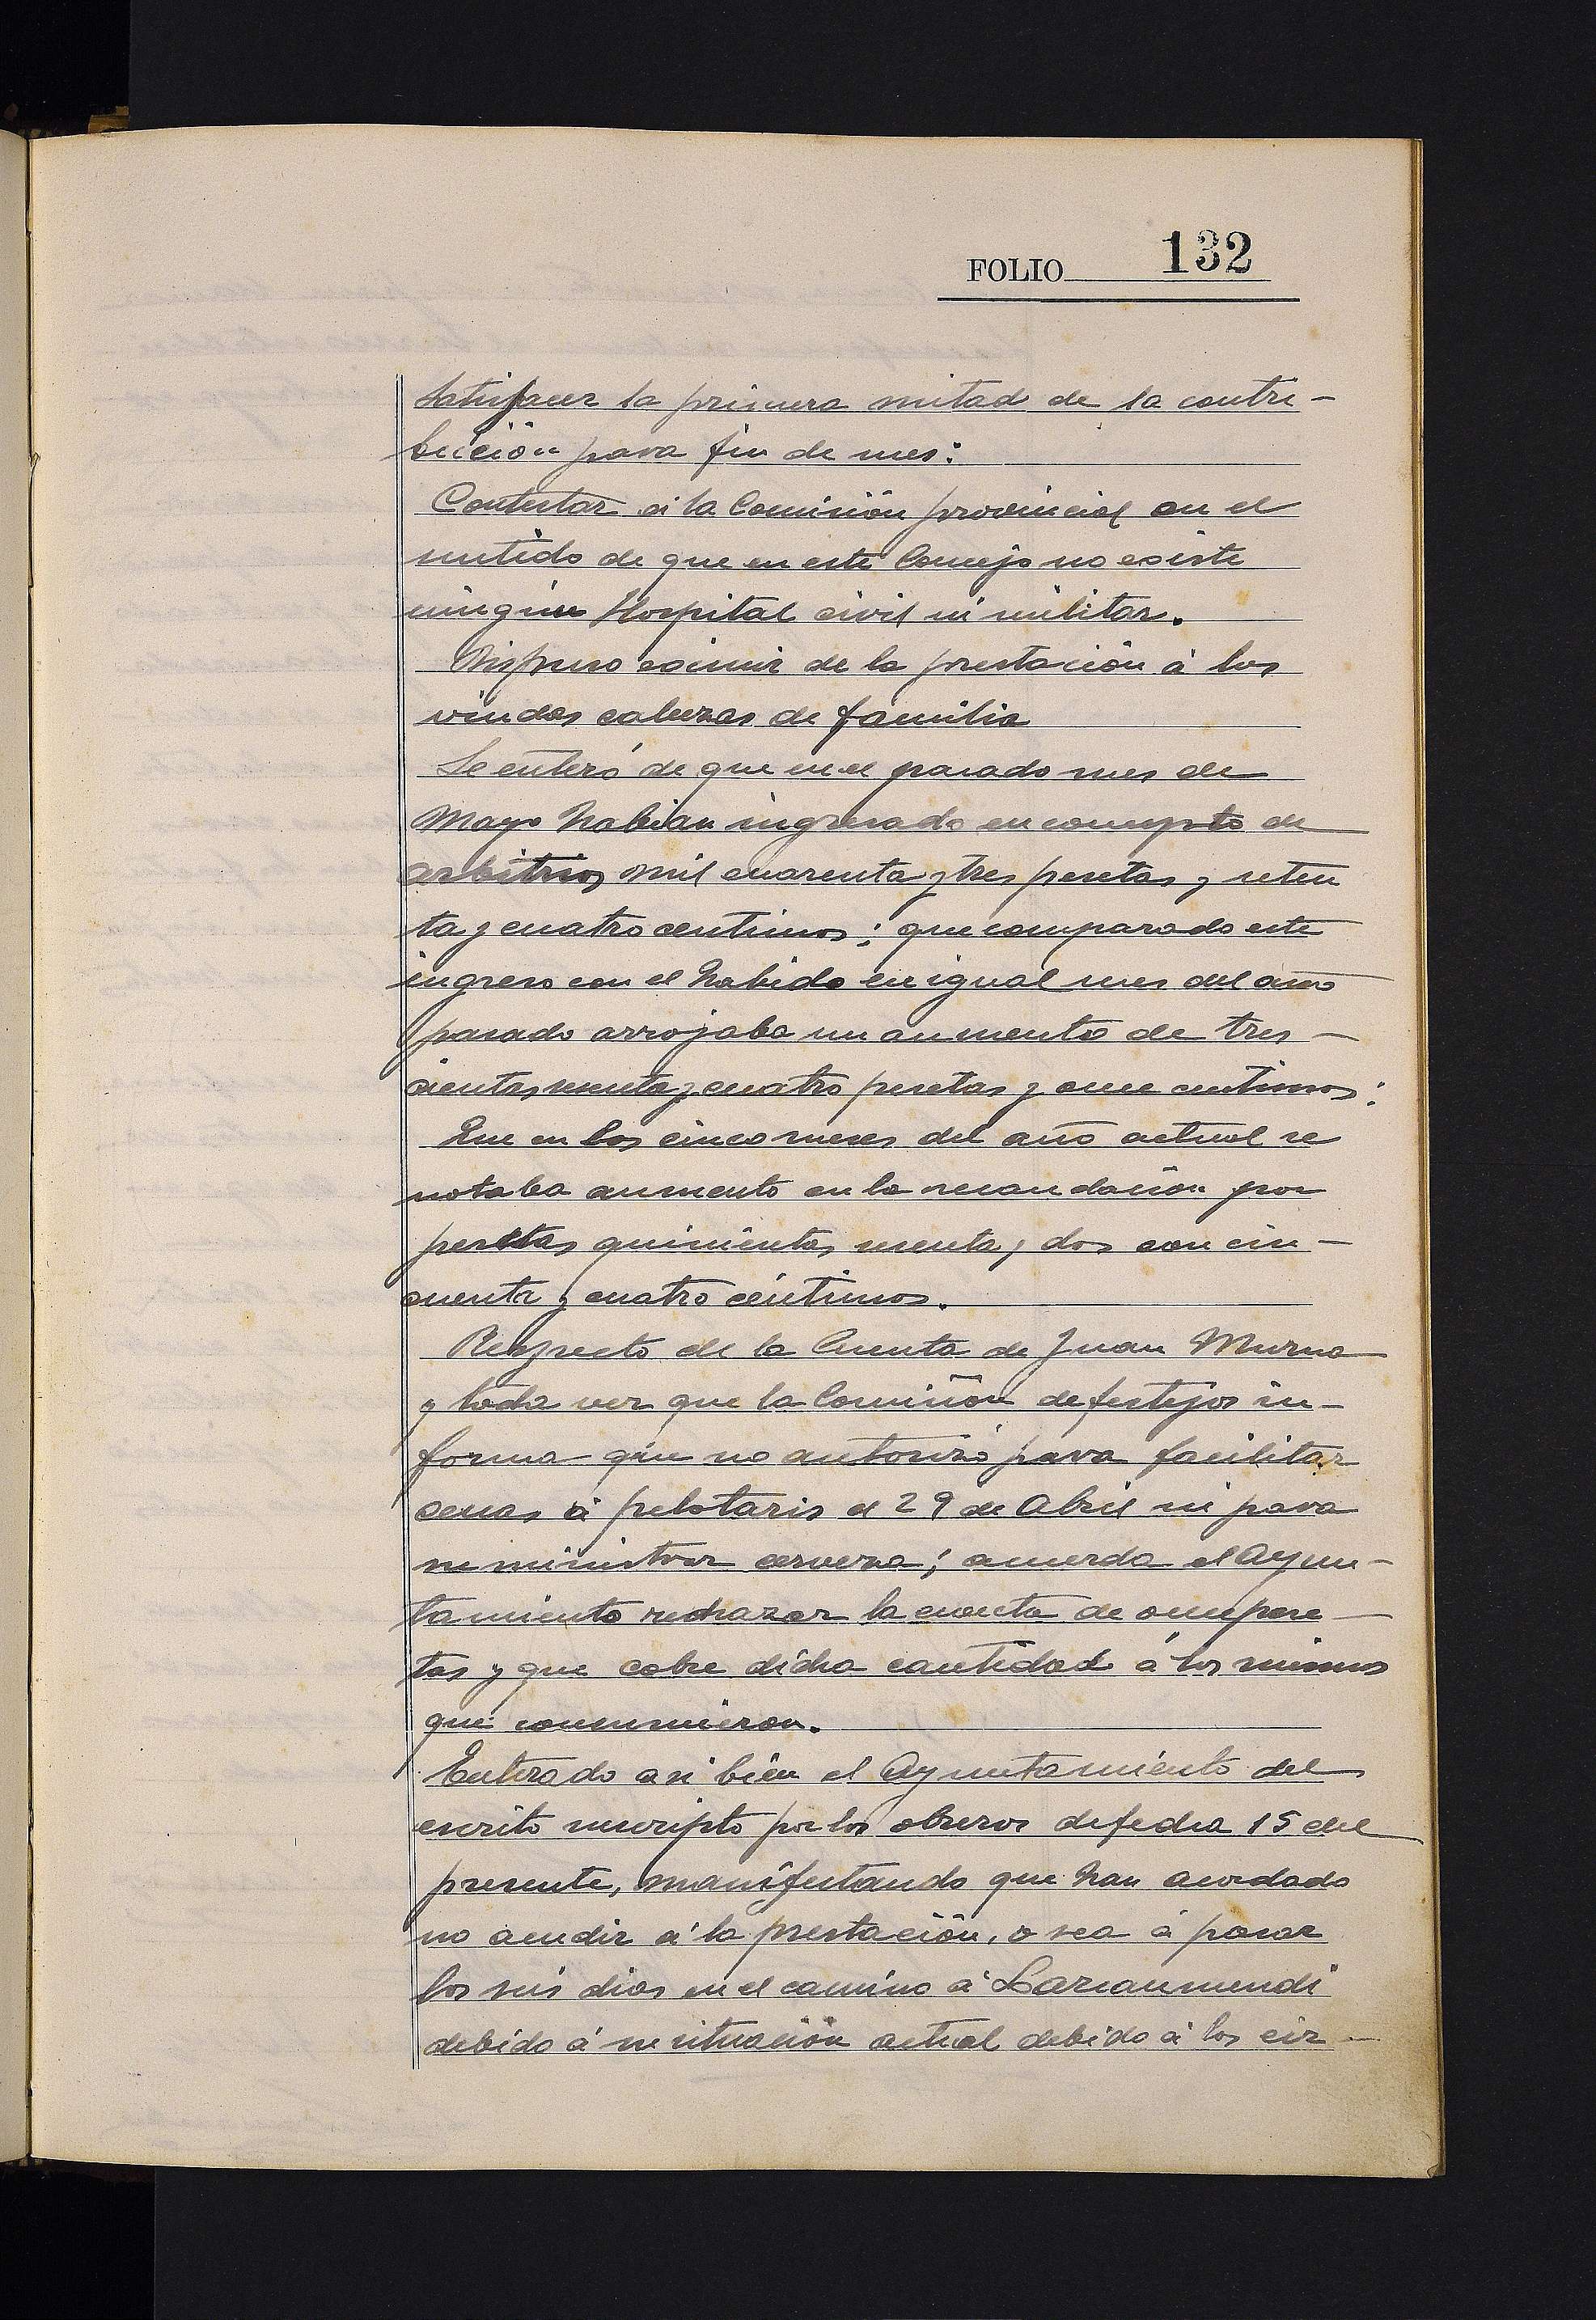 FOLIO 132
satisfacer la primera mitad de la contri-
bución para fin de mes:
Contestar á la Comisión provincial en el
sentido de que en este Concejo no existe
ningún Hospital civil ni militar.
Dispuso eximir de la prestación á los
viudos cabezas de familia
Se enteró de que en el pasado mes de
Mayo habian ingresado en concepto de
arbitrios mil cuarenta y tres pesetas y seten
ta y cuatro centimos; que comparado este
ingreso con el habido en igual mes del año
pasado arrojaba un aumento de tres-
cientas sesenta y cuatro pesetas y once centimos:
Que en los cinco meses del año actual se
notaba aumento en la recaudación por
pesetas quinientas sesenta y dos con cin-
cuenta y cuatro céntimos.
Respecto de la Cuenta de Juan Murua
y toda vez que la Comisión de festejos in-
forma que no autorizó para facilitar
cenas á pelotaris el 29 de Abril ni para
suministrar cerveza; acuerda el Ayun-
tamiento rechazar la cuenta de once pese-
tas y que cobre dicha cantidad á los mismos
que consumieron.
Enterado asi bien el Ayuntamiento del
escrito suscripto por los obreros de fecha 15 del
presente, manifestando que han acordado
no acudir á la prestación, o sea á pasar
los seis dias en el camino á Lazcanmendi
debido á su situación actual debido á los cir-